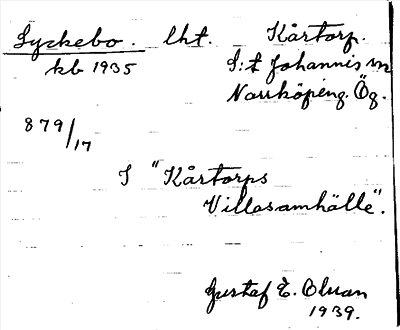 Lyckebo. lht. Kårtorp.
kb 1935 S:t Johannis sn
Norrköping. Ög.
879/17
I "Kårtorps
Villasamhälle".
Gustaf E. Olsson
1939.